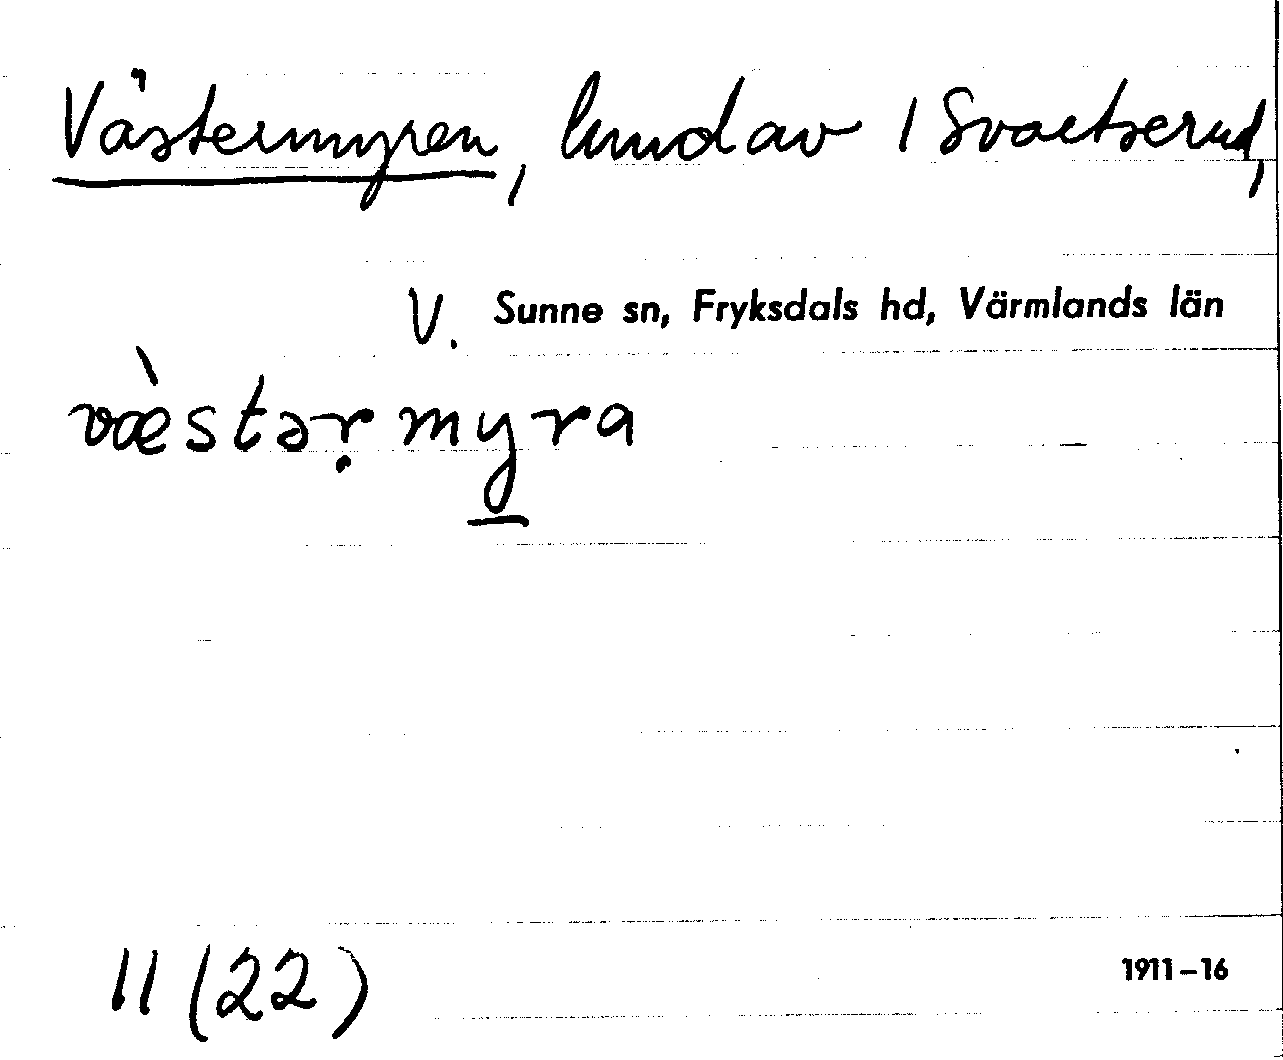 Västermyren, lmd av 1 Svartserud,
V. Sunne sn, Fryksdals hd, Värmlands län
væ̀stəṛmy̠ra
11 (22)
1911–16